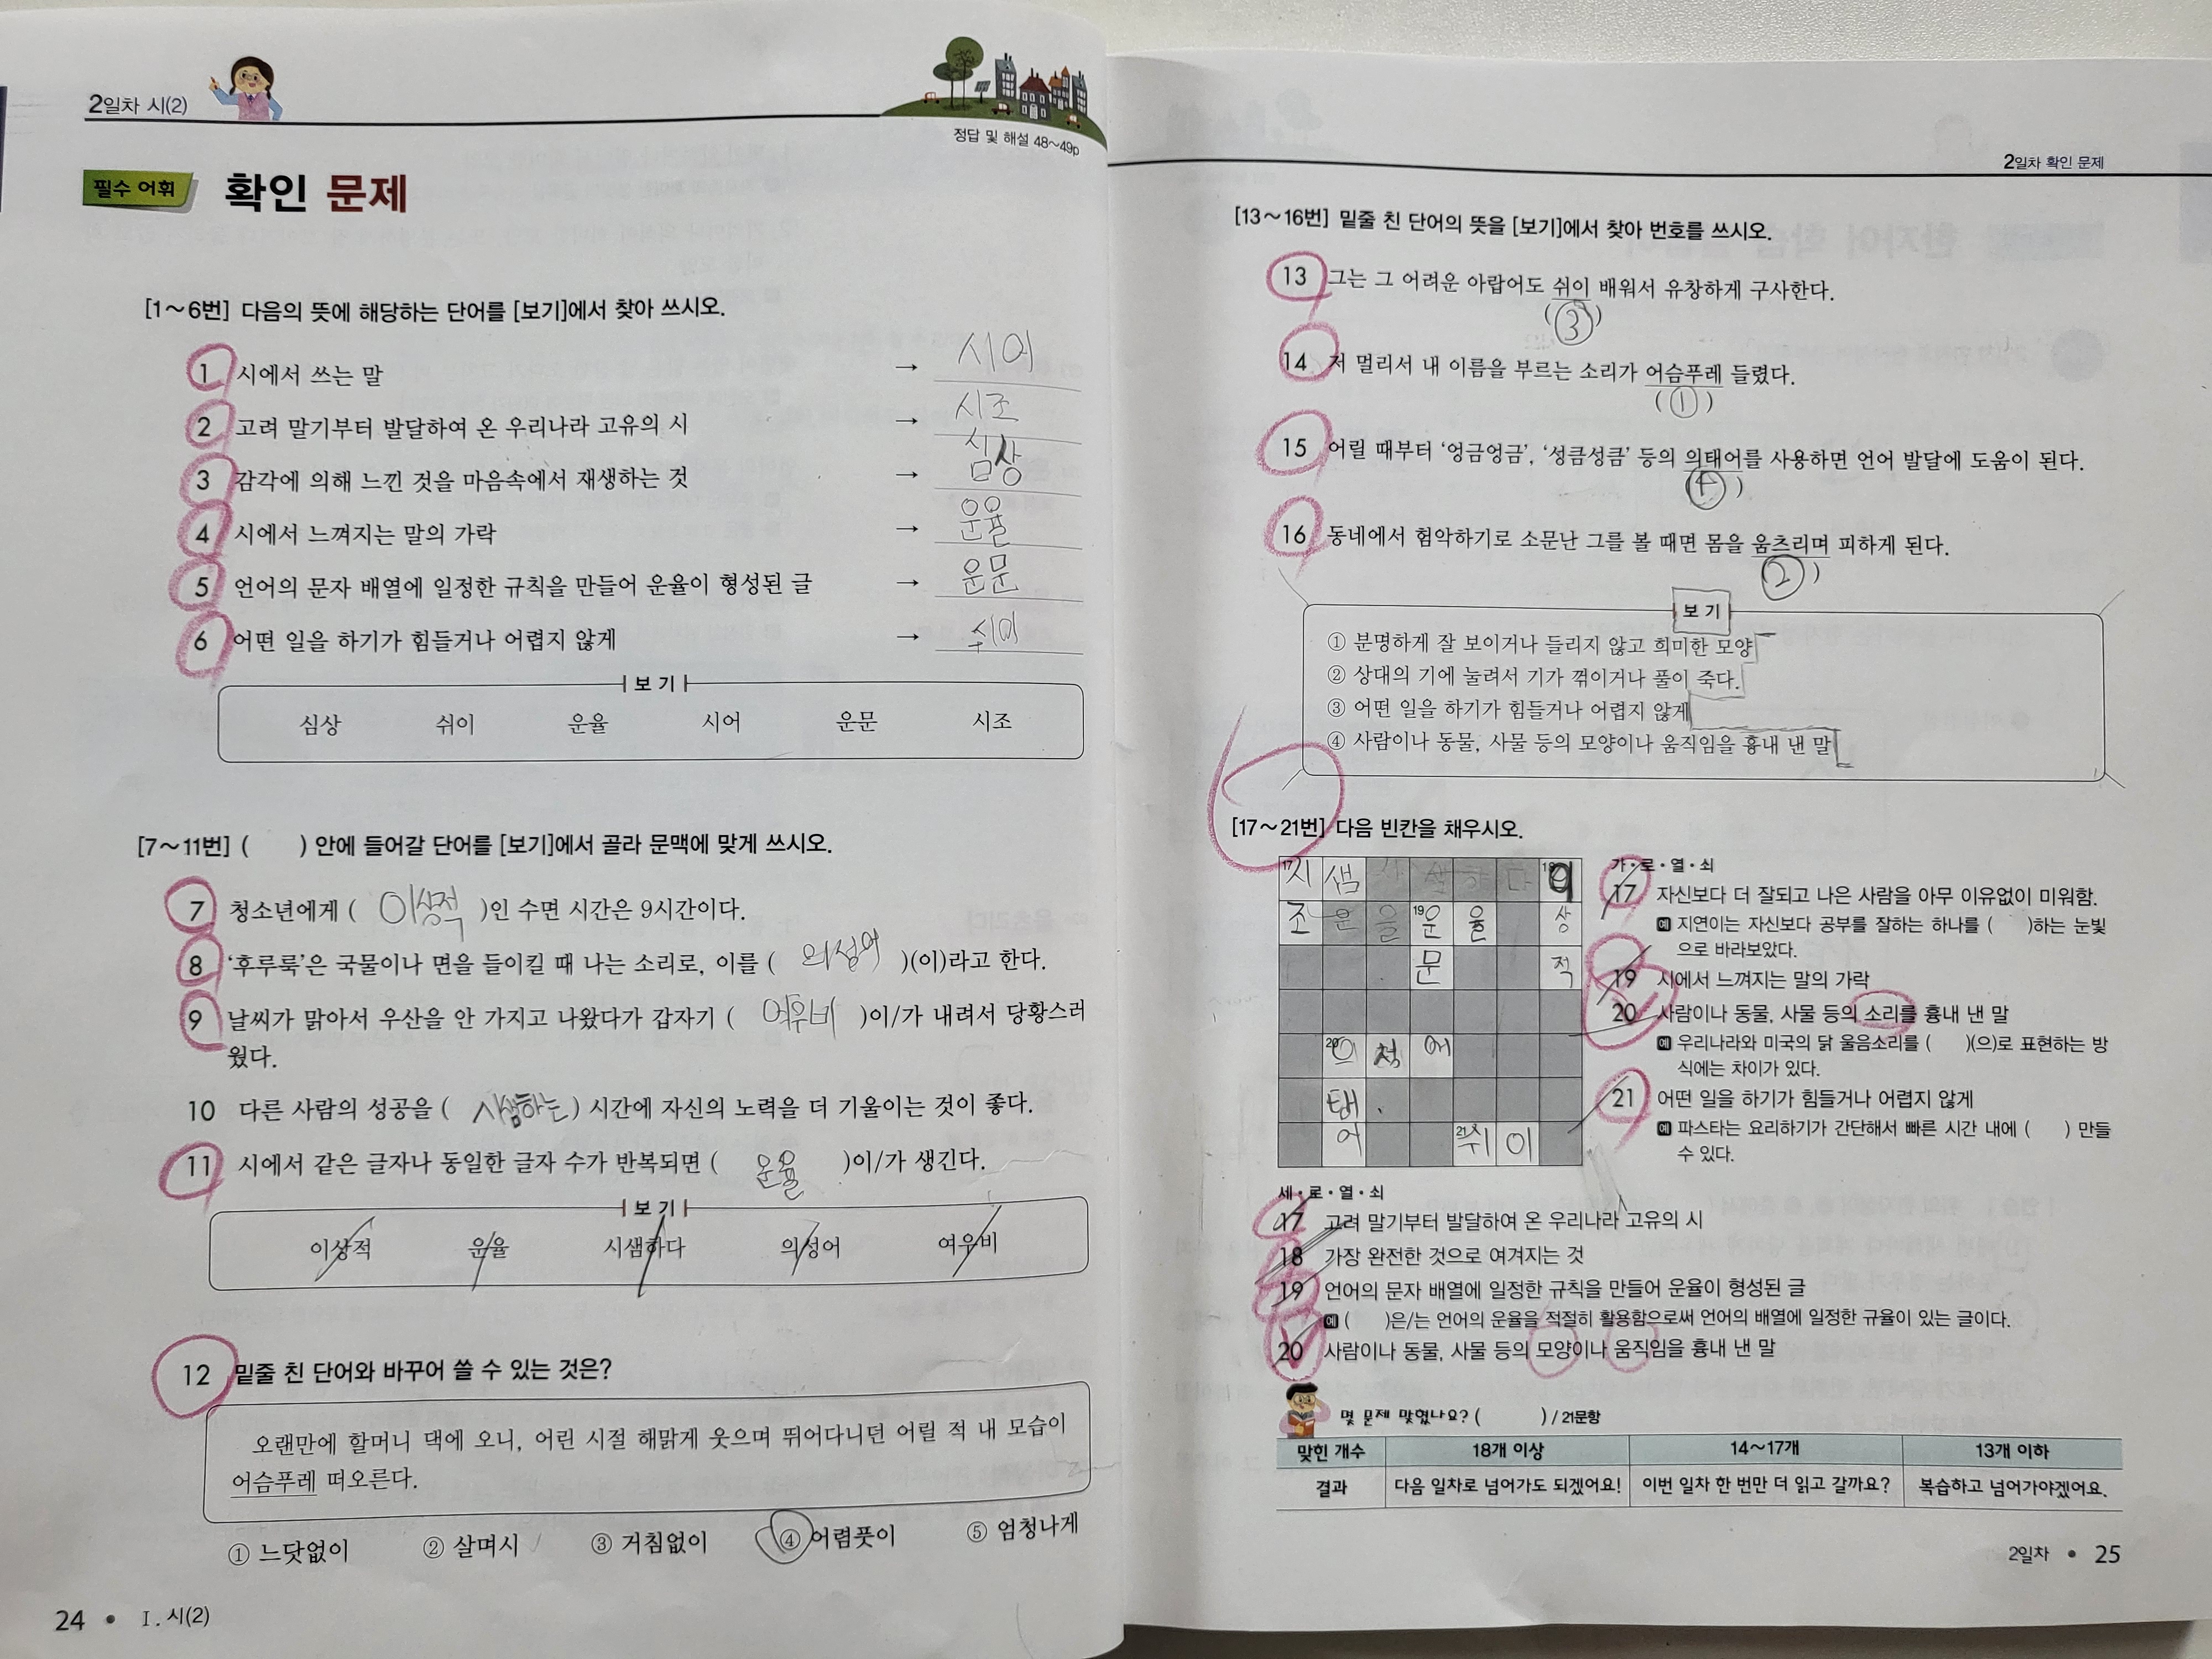 2일차 시(2)
정답 및 해설 48~49p
필수 어휘 확인 문제
[1~6번] 다음의 뜻에 해당하는 단어를 [보기]에서 찾아 쓰시오.
1 시에서 쓰는 말 → 시어
2 고려 말기부터 발달하여 온 우리나라 고유의 시 → 시조
3 감각에 의해 느낀 것을 마음속에서 재생하는 것 → 심상
4 시에서 느껴지는 말의 가락 → 운율
5 언어의 문자 배열에 일정한 규칙을 만들어 운율이 형성된 글 → 운문
6 어떤 일을 하기가 힘들거나 어렵지 않게 → 쉬이
보기
심상 쉬이 운율 시어 운문 시조
[7~11번] ( ) 안에 들어갈 단어를 [보기]에서 골라 문맥에 맞게 쓰시오.
7 청소년에게 ( 이상적 )인 수면 시간은 9시간이다.
8 '후루룩'은 국물이나 면을 들이킬 때 나는 소리로, 이를 ( 의성어 )(이)라고 한다.
9 날씨가 맑아서 우산을 안 가지고 나왔다가 갑자기 ( 여우비 )이/가 내려서 당황스러
웠다.
10 다른 사람의 성공을 ( 시샘하는 ) 시간에 자신의 노력을 더 기울이는 것이 좋다.
11 시에서 같은 글자나 동일한 글자 수가 반복되면 ( 운율 )이/가 생긴다.
보기
이상적 운율 시샘하다 의성어 여우비
12 밑줄 친 단어와 바꾸어 쓸 수 있는 것은?
오랜만에 할머니 댁에 오니, 어린 시절 해맑게 웃으며 뛰어다니던 어릴 적 내 모습이
어슴푸레 떠오른다.
① 느닷없이 ② 살며시 ③ 거침없이 ④ 어렴풋이 ⑤ 엄청나게
24 • Ⅰ. 시(2)
2일차 확인 문제
[13~16번] 밑줄 친 단어의 뜻을 [보기]에서 찾아 번호를 쓰시오.
13 그는 그 어려운 아랍어도 쉬이 배워서 유창하게 구사한다.
(③)
14 저 멀리서 내 이름을 부르는 소리가 어슴푸레 들렸다.
(①)
15 어릴 때부터 '엉금엉금', '성큼성큼' 등의 의태어를 사용하면 언어 발달에 도움이 된다.
(④)
16 동네에서 험악하기로 소문난 그를 볼 때면 몸을 움츠리며 피하게 된다.
(②)
보기
① 분명하게 잘 보이거나 들리지 않고 희미한 모양
② 상대의 기에 눌려서 기가 꺾이거나 풀이 죽다.
③ 어떤 일을 하기가 힘들거나 어렵지 않게
④ 사람이나 동물, 사물 등의 모양이나 움직임을 흉내 낸 말
[17~21번] 다음 빈칸을 채우시오.
17 시 샘 18 이
조 19 운 율 상
문 적
20 의 성 어
태
어 21 쉬 이
가·로·열·쇠
17 자신보다 더 잘되고 나은 사람을 아무 이유없이 미워함.
예 지연이는 자신보다 공부를 잘하는 하나를 ( )하는 눈빛
으로 바라보았다.
19 시에서 느껴지는 말의 가락
20 사람이나 동물, 사물 등의 소리를 흉내 낸 말
예 우리나라와 미국의 닭 울음소리를 ( )(으)로 표현하는 방
식에는 차이가 있다.
21 어떤 일을 하기가 힘들거나 어렵지 않게
예 파스타는 요리하기가 간단해서 빠른 시간 내에 ( ) 만들
수 있다.
세·로·열·쇠
17 고려 말기부터 발달하여 온 우리나라 고유의 시
18 가장 완전한 것으로 여겨지는 것
19 언어의 문자 배열에 일정한 규칙을 만들어 운율이 형성된 글
예 ( )은/는 언어의 운율을 적절히 활용함으로써 언어의 배열에 일정한 규율이 있는 글이다.
20 사람이나 동물, 사물 등의 모양이나 움직임을 흉내 낸 말
몇 문제 맞혔나요? ( ) / 21문항
맞힌 개수 18개 이상 14~17개 13개 이하
결과 다음 일차로 넘어가도 되겠어요! 이번 일차 한 번만 더 읽고 갈까요? 복습하고 넘어가야겠어요.
2일차 • 25